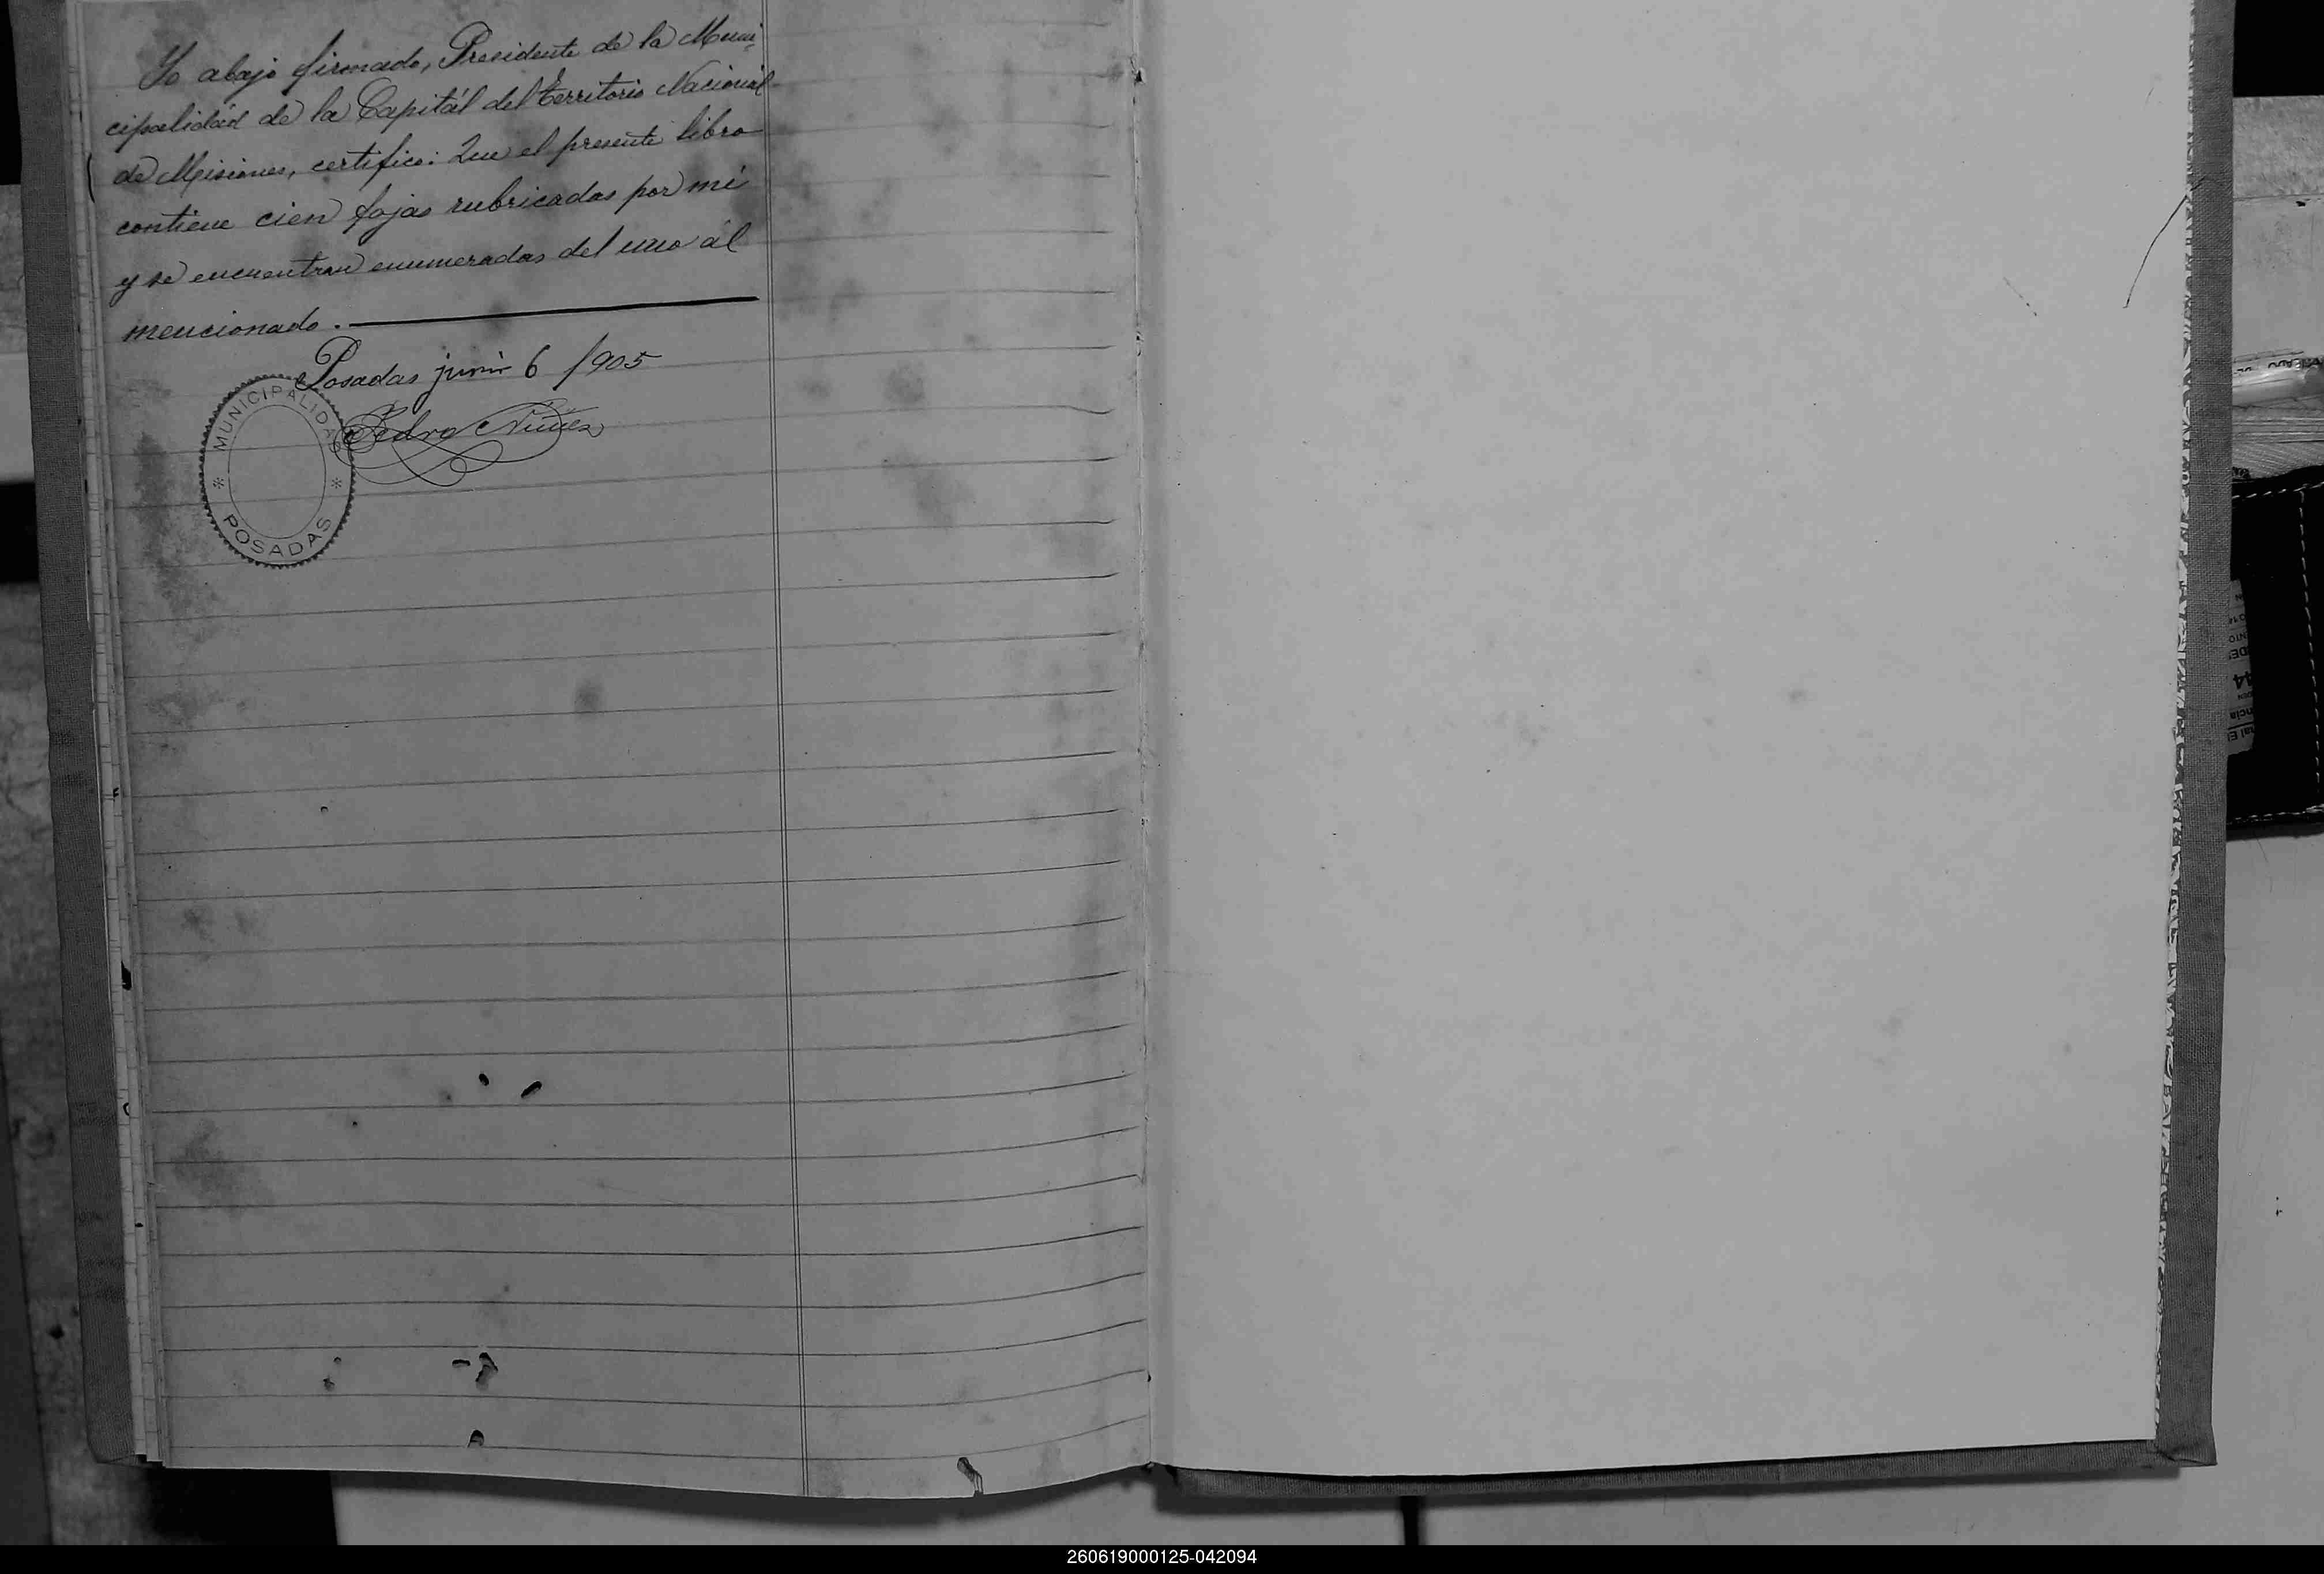 Yo abajo firmado, Presidente de la Muni-
cipalidád de la Capitál del Territorio Nacional
de Misiones, certifico: Que el presente libro
contiene cien fojas rubricadas por mi
y se encuentran enumeradas del uno ál
mencionado.
Posadas junio 6 1905
Pedro Núñez
MUNICIPALIDAD
POSADAS
44
260619000125-042094